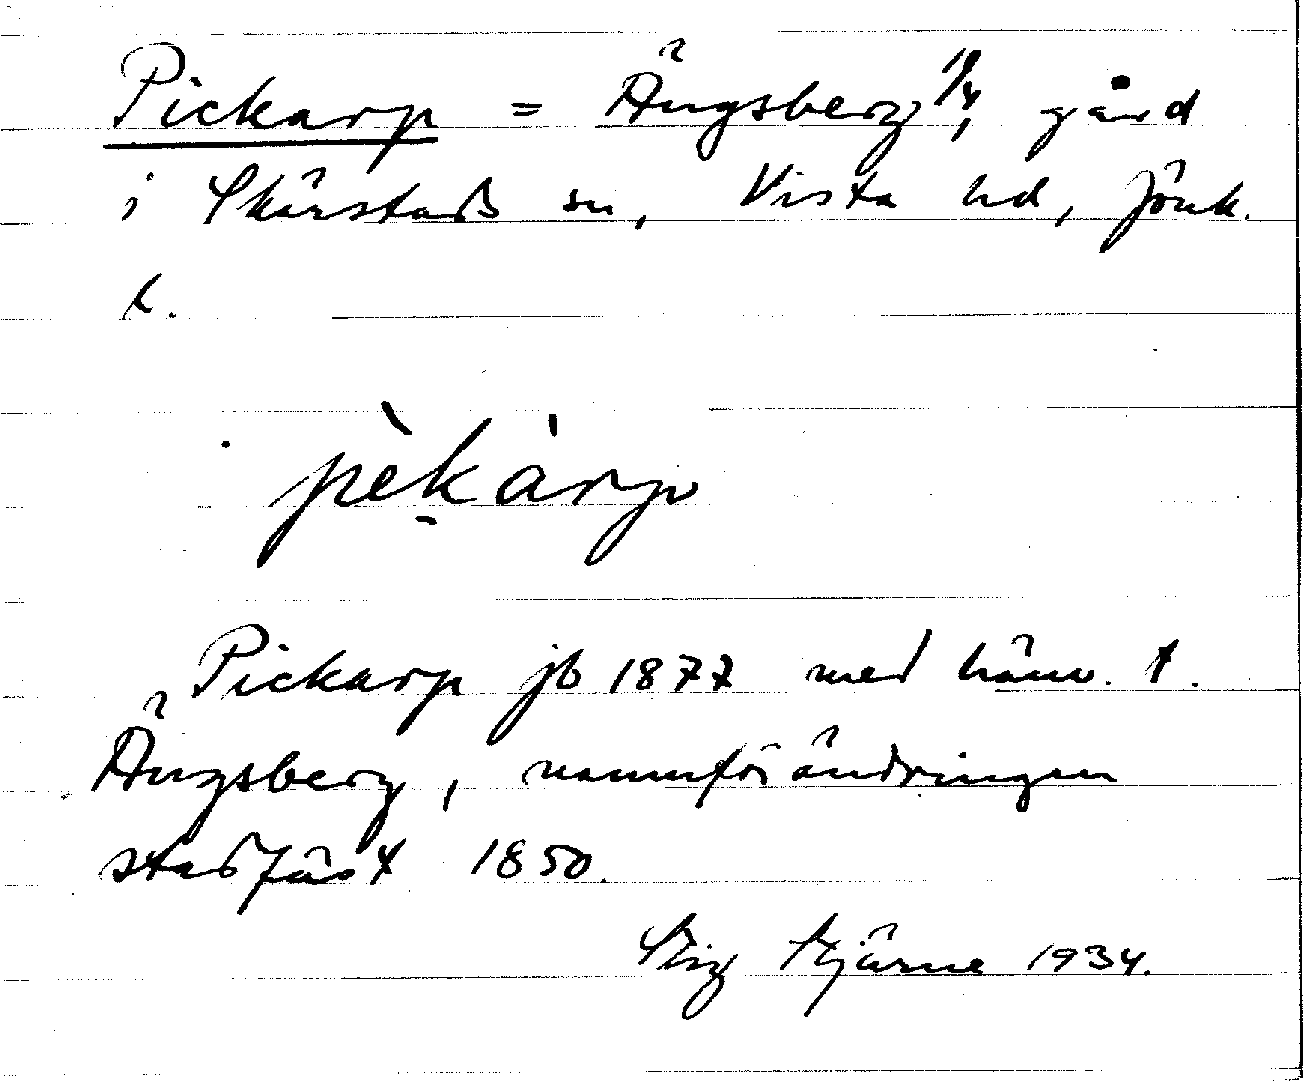 Pickarp = Ängsberg 1/4, gård
i Skärstads sn, Vista hd, Jönk.
l.
pèkàrp
Pickarp jb 1877 med hänv. t.
Ängsberg, namnförändringen
stadfäst 1850.
Stig Stjärne 1934.